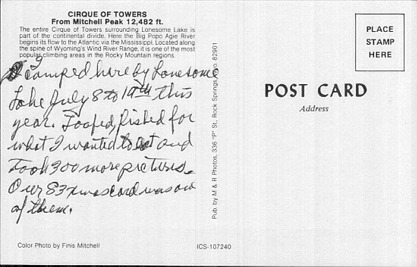 CIRQUE OF TOWERS
From Mitchell Peak 12,482 ft.
The entire Cirque of Towers surrounding Lonesome Lake is
part of the continental divide. Here the Big Popo Agie River
begins its flow to the Atlantic via the Mississippi. Located along
the spine of Wyoming's Wind River Range, it is one of the most
popular climbing areas in the Rocky Mountain regions.
I camped here by Lonesome
Lake July 8 to 19th this
year. Loafed, fished for
what I wanted to eat and
took 300 more pictures.
Our 83 xmas card was one
of them.
Color Photo by Finis Mitchell
ICS-107240
Pub. by M & R Photos, 336 "P" St. Rock Springs, Wyo. 82901
POST CARD
Address
PLACE
STAMP
HERE